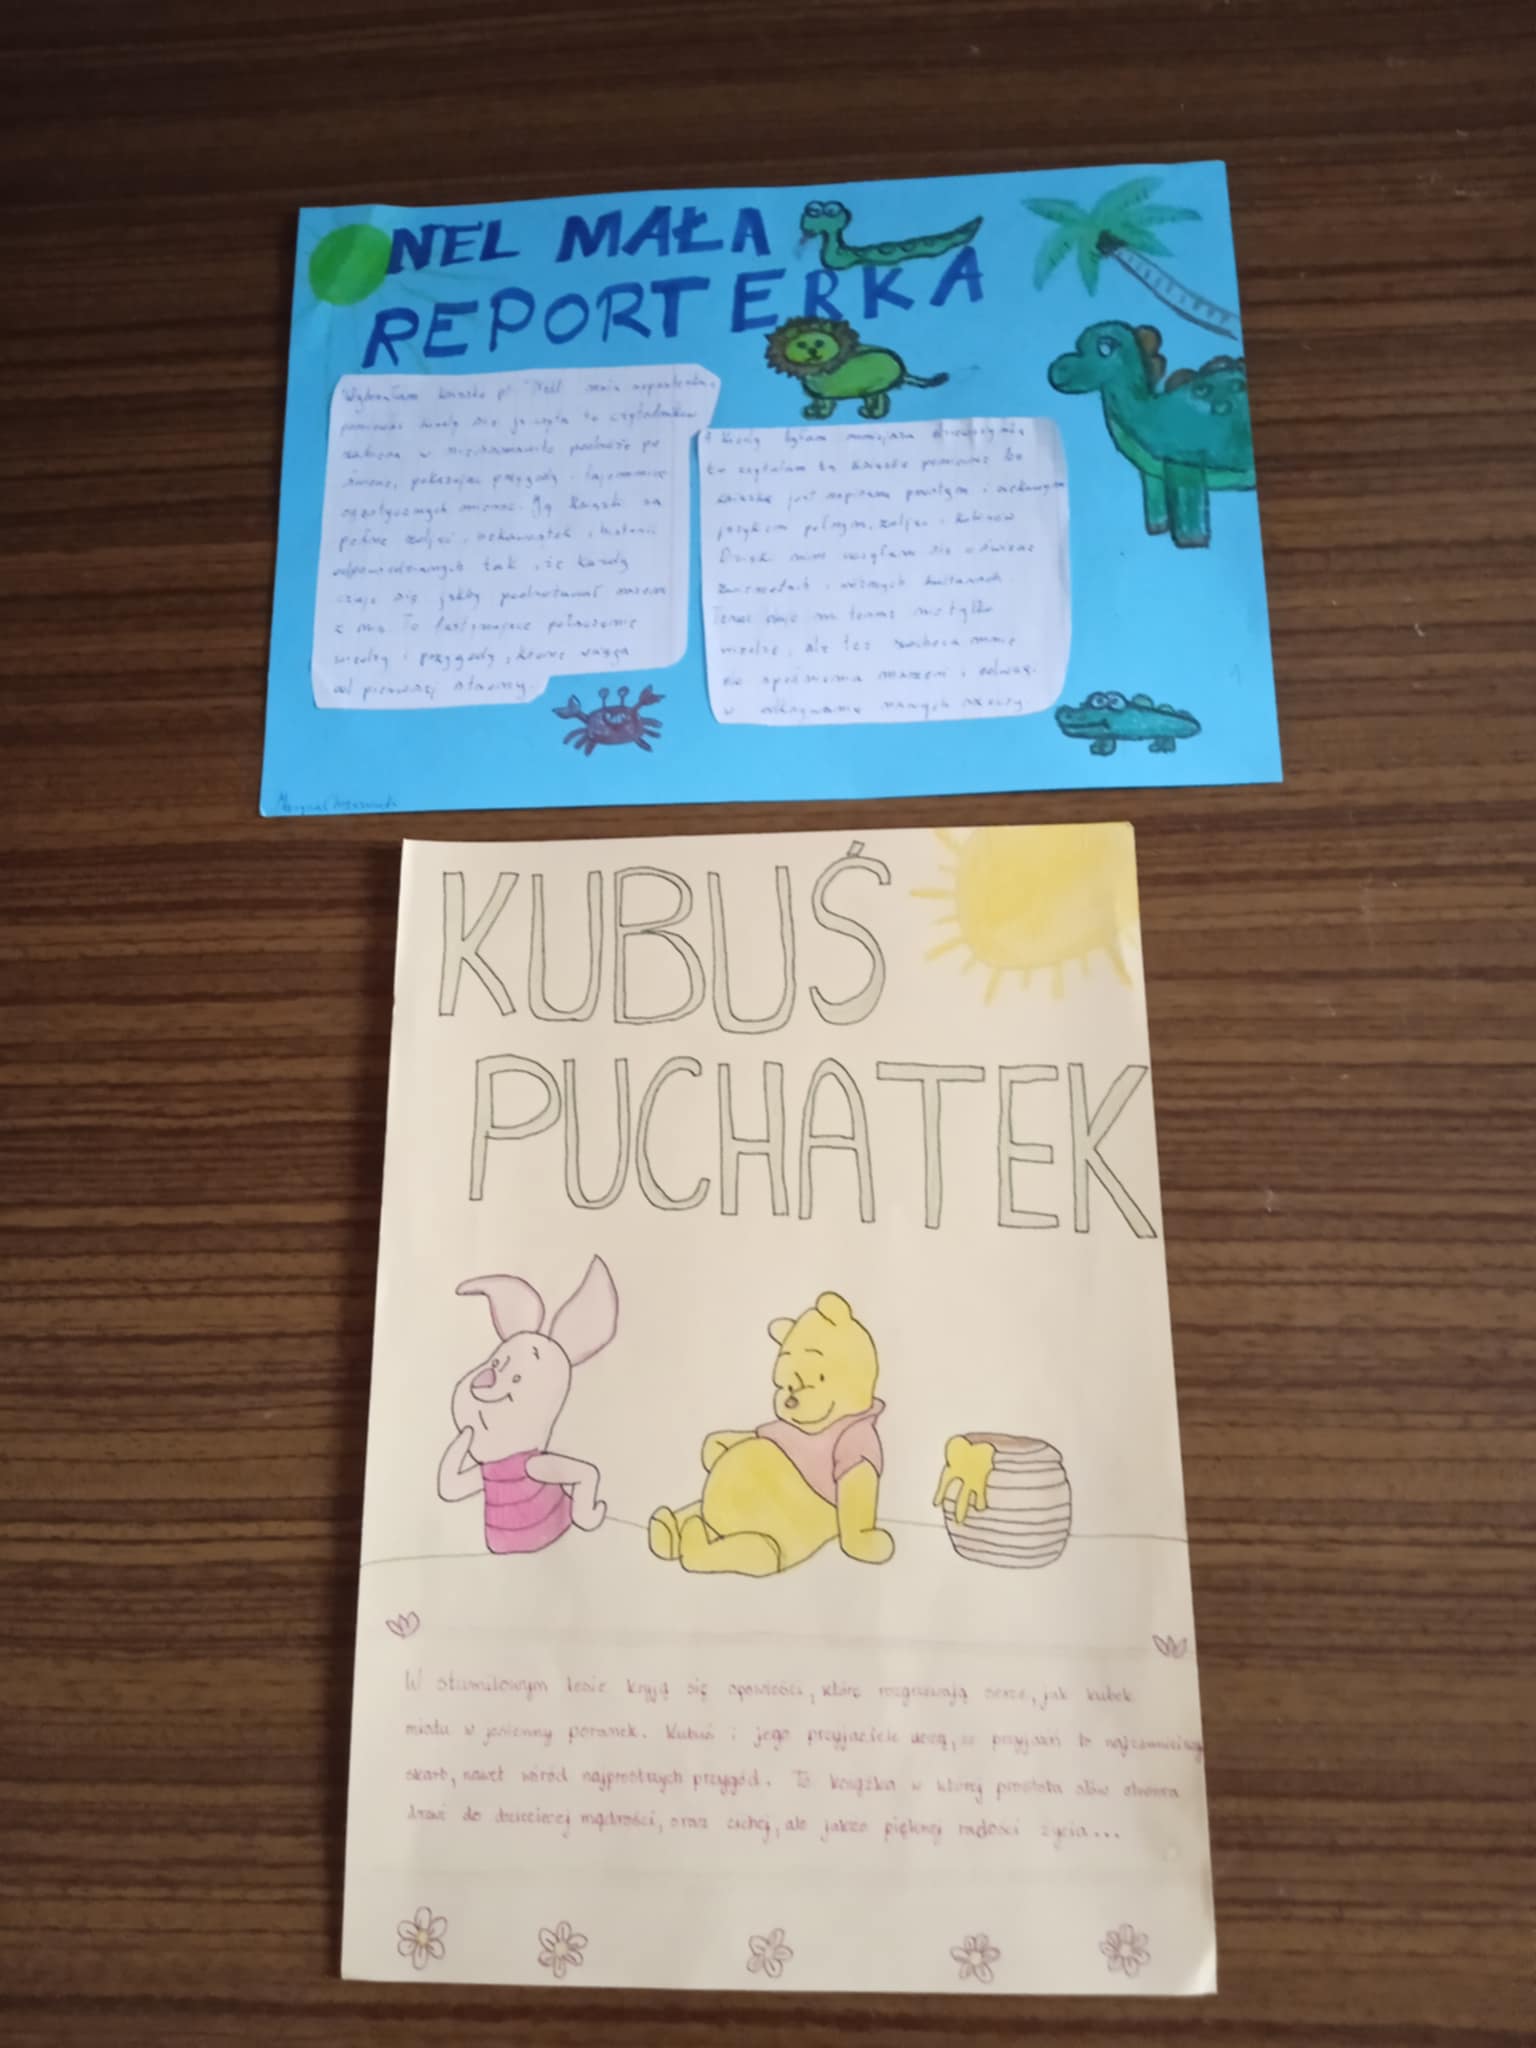 NEL MAŁA
REPORTERKA
Wybrałam książkę pt "Nel mała reporterka,
ponieważ kiedy się ją czyta to czytelników
zabiera w niesamowite podróże po
świecie, pokazując przygody i tajemnice
egzotycznych miejsc. Jej książki są
pełne zdjęć, ciekawostek i historii
tak, że każdy
czuje się jakby podróżował razem
z nią. To fascynujące połączenie
wiedzy i przygody, które wciąga
od pierwszej strony.
A kiedy byłam mniejszą dziewczynką
to czytałam tą książkę ponieważ bo
książka jest napisana prostym i ciekawym
językiem pełnym, zdjęć i kolorów
Dzięki nim uczyłam się o świecie
zwierzętach i różnych kulturach
Teraz daje mi teraz nie tylko
wiedzę, ale też zachęca mnie
do spełnienia marzeń i odwagi
w odkrywaniu nowych rzeczy
KUBUŚ
PUCHATEK
W stumilowym lesie kryją się opowieści, które rozgrzewają serce, jak kubek
miodu w jesienny poranek. Kubuś i jego przyjaciele uczą, że przyjaźń to najcenniejszy
skarb, nawet wśród najprostszych przygód. To książka w której prostota słów otwiera
drzwi do dziecięcej mądrości, oraz cichej, ale jakże pięknej radości życia...